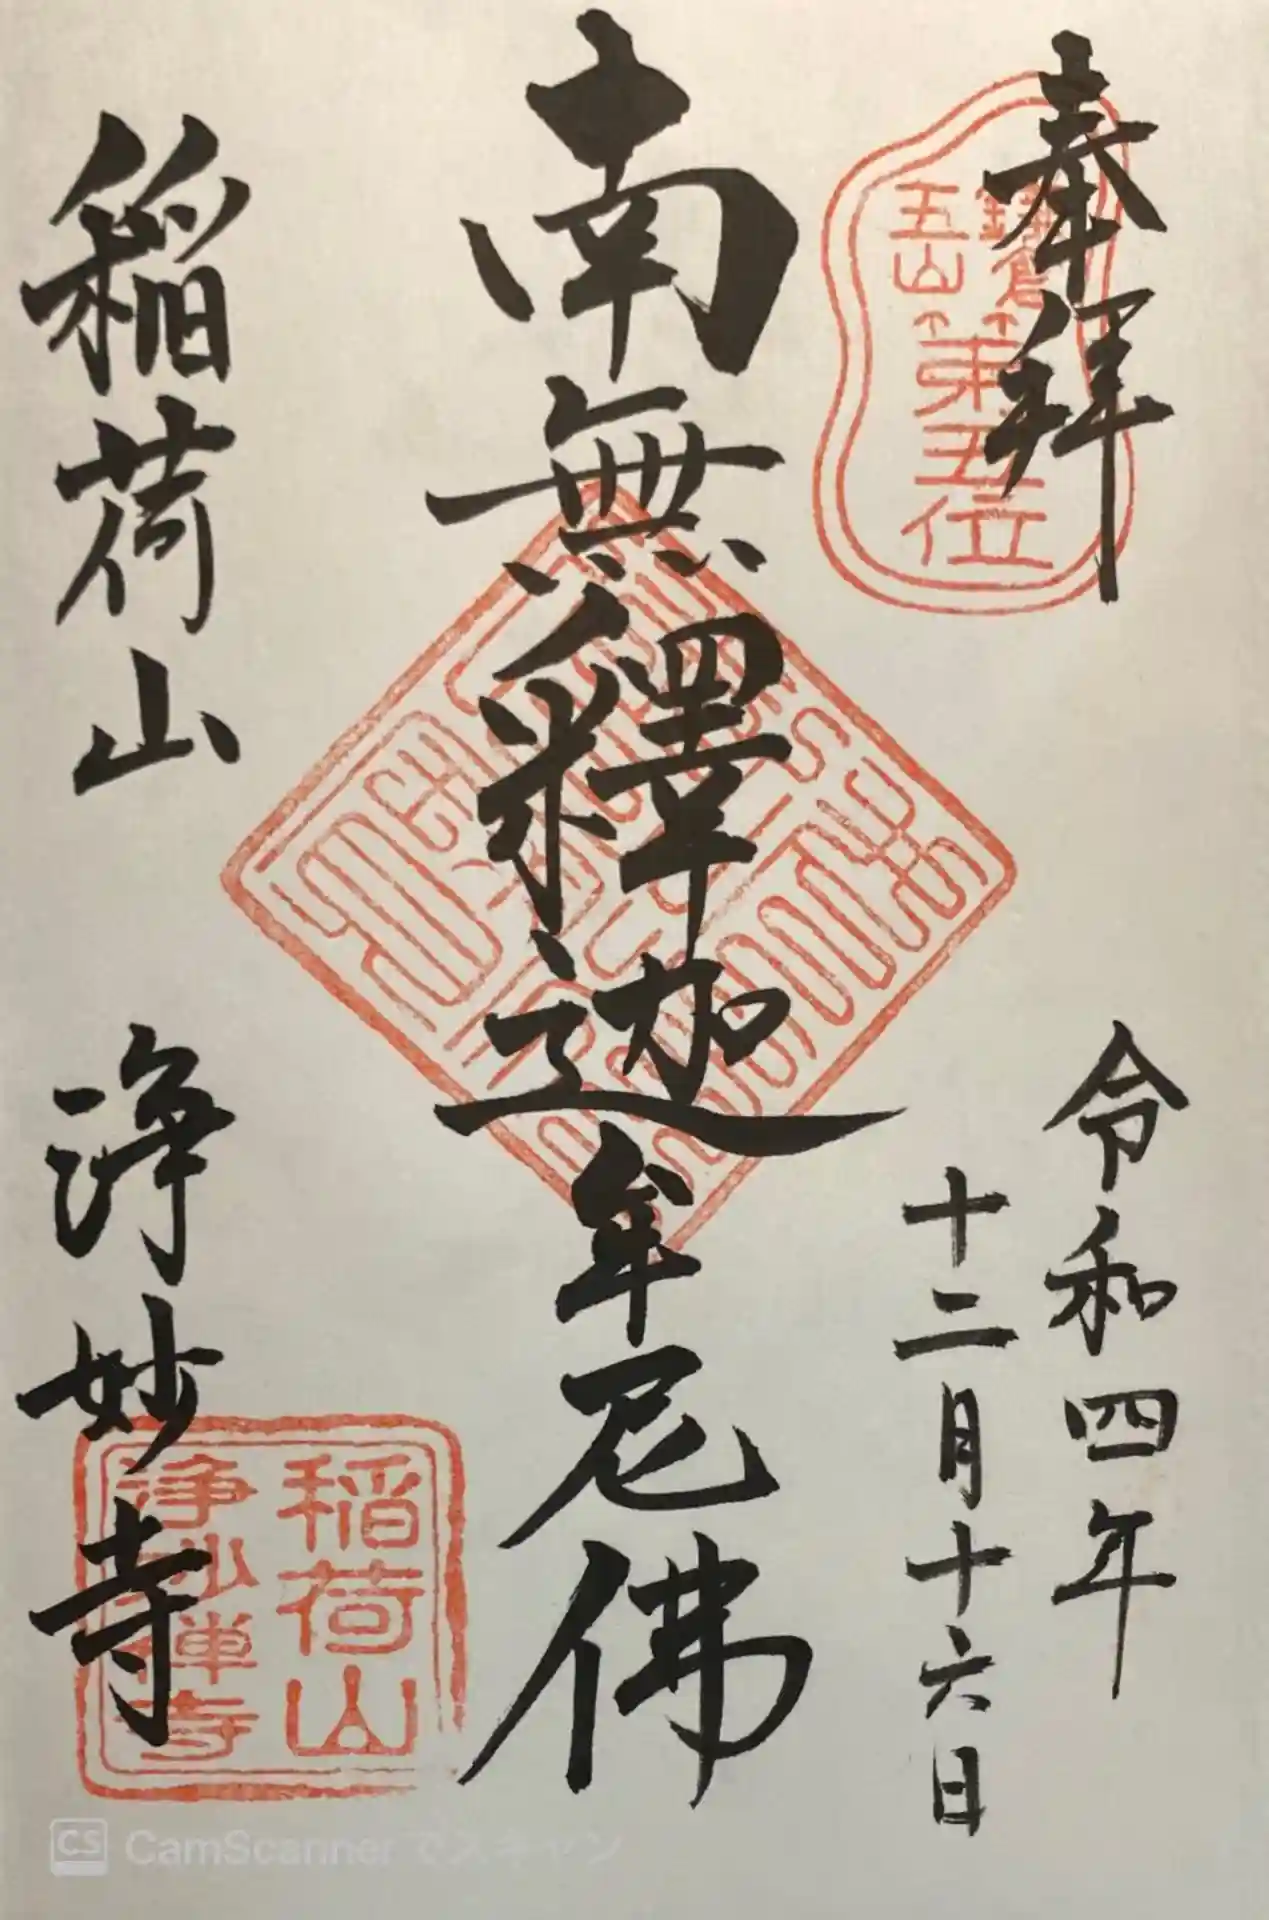 奉拝
鎌倉
五山
第五位
令和四年
十二月十六日
南無釋迦牟尼佛
稲荷山 浄妙寺
稲荷山
浄妙禅寺
CS CamScannerでスキャン